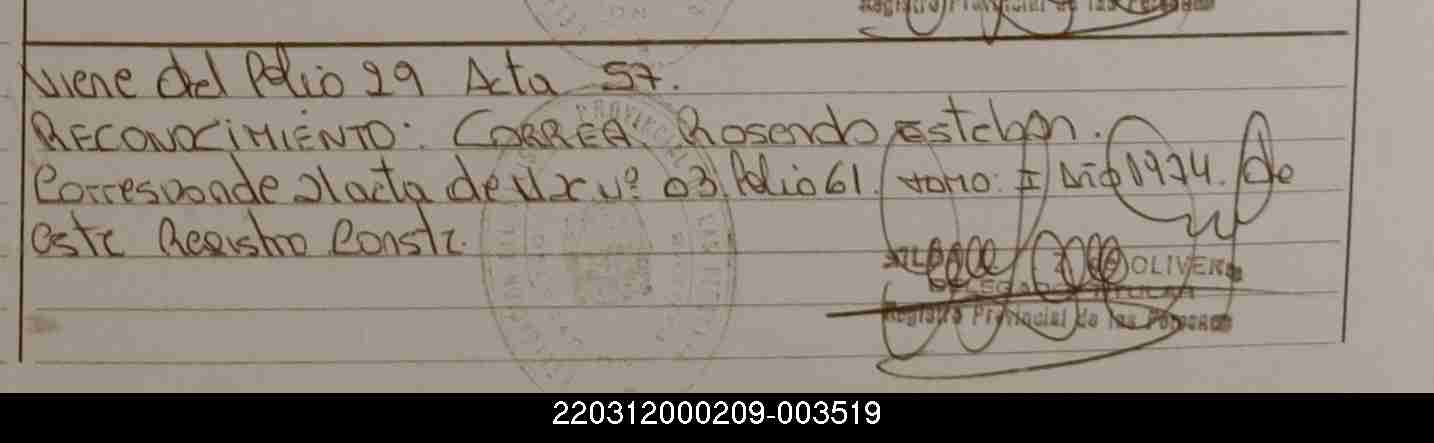 Registro Provincial de las Personas
Viene del Folio 29 Acta 57.
RECONOCIMIENTO: CORREA Rosendo Esteban.
Corresponde al acta de Nº 03 Folio 61. tomo: I Año 1974. de
este Registro Conste.
OLIVERA
DELEGADO TITULAR
Registro Provincial de las Personas
220312000209-003519